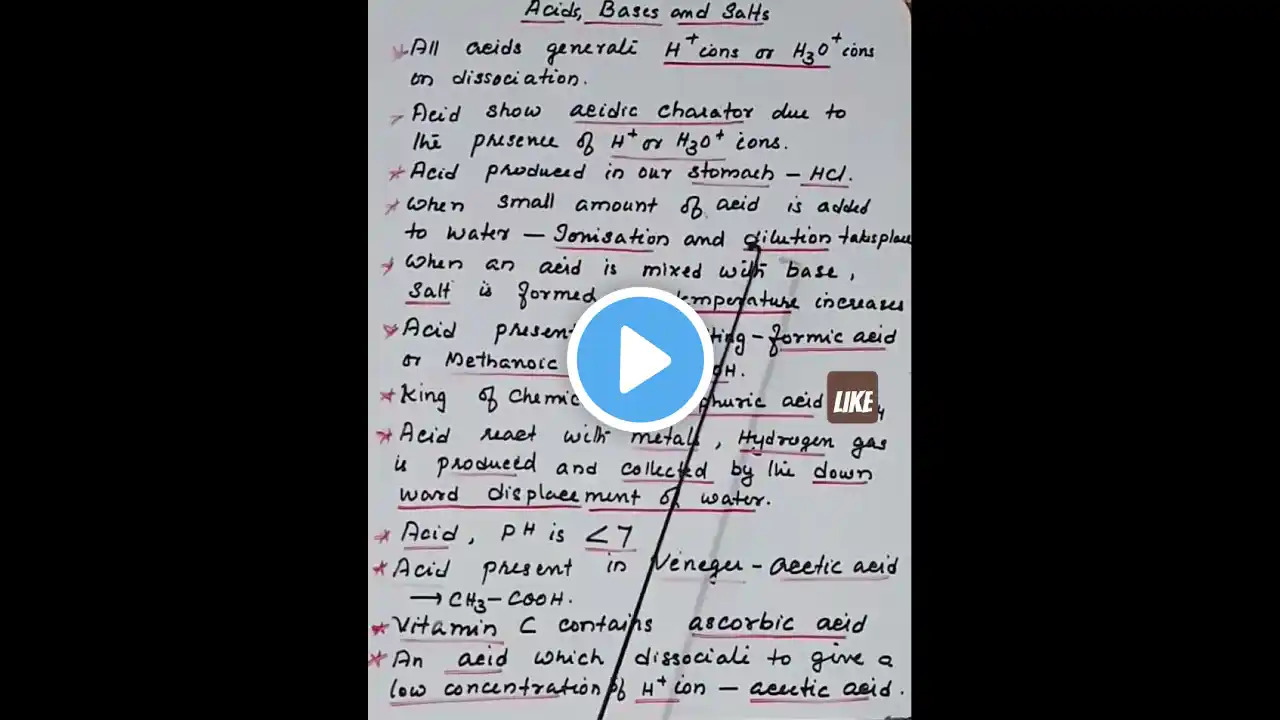 Acids, Bases and Salts
All acids generali H+ ions or H3O+ ions
on dissociation.
Acid show acidic charator due to
the presence of H+ or H3O+ ions.
Acid produced in our stomach – HCl.
When small amount of acid is added
to water – Ionisation and dilution takes place
When an acid is mixed with base,
Salt is formed temperature increases
Acid present ting – formic acid
or Methanoic OH.
King of Chemic phuric acid LIKE 4
Acid react with metals, Hydrogen gas
is produced and collected by the down
ward displacement of water.
Acid, PH is <7
Acid present in Veneger – acetic acid
→ CH3–COOH.
Vitamin C contains ascorbic acid
An acid which dissociali to give a
low concentration of H+ ion – acetic acid.